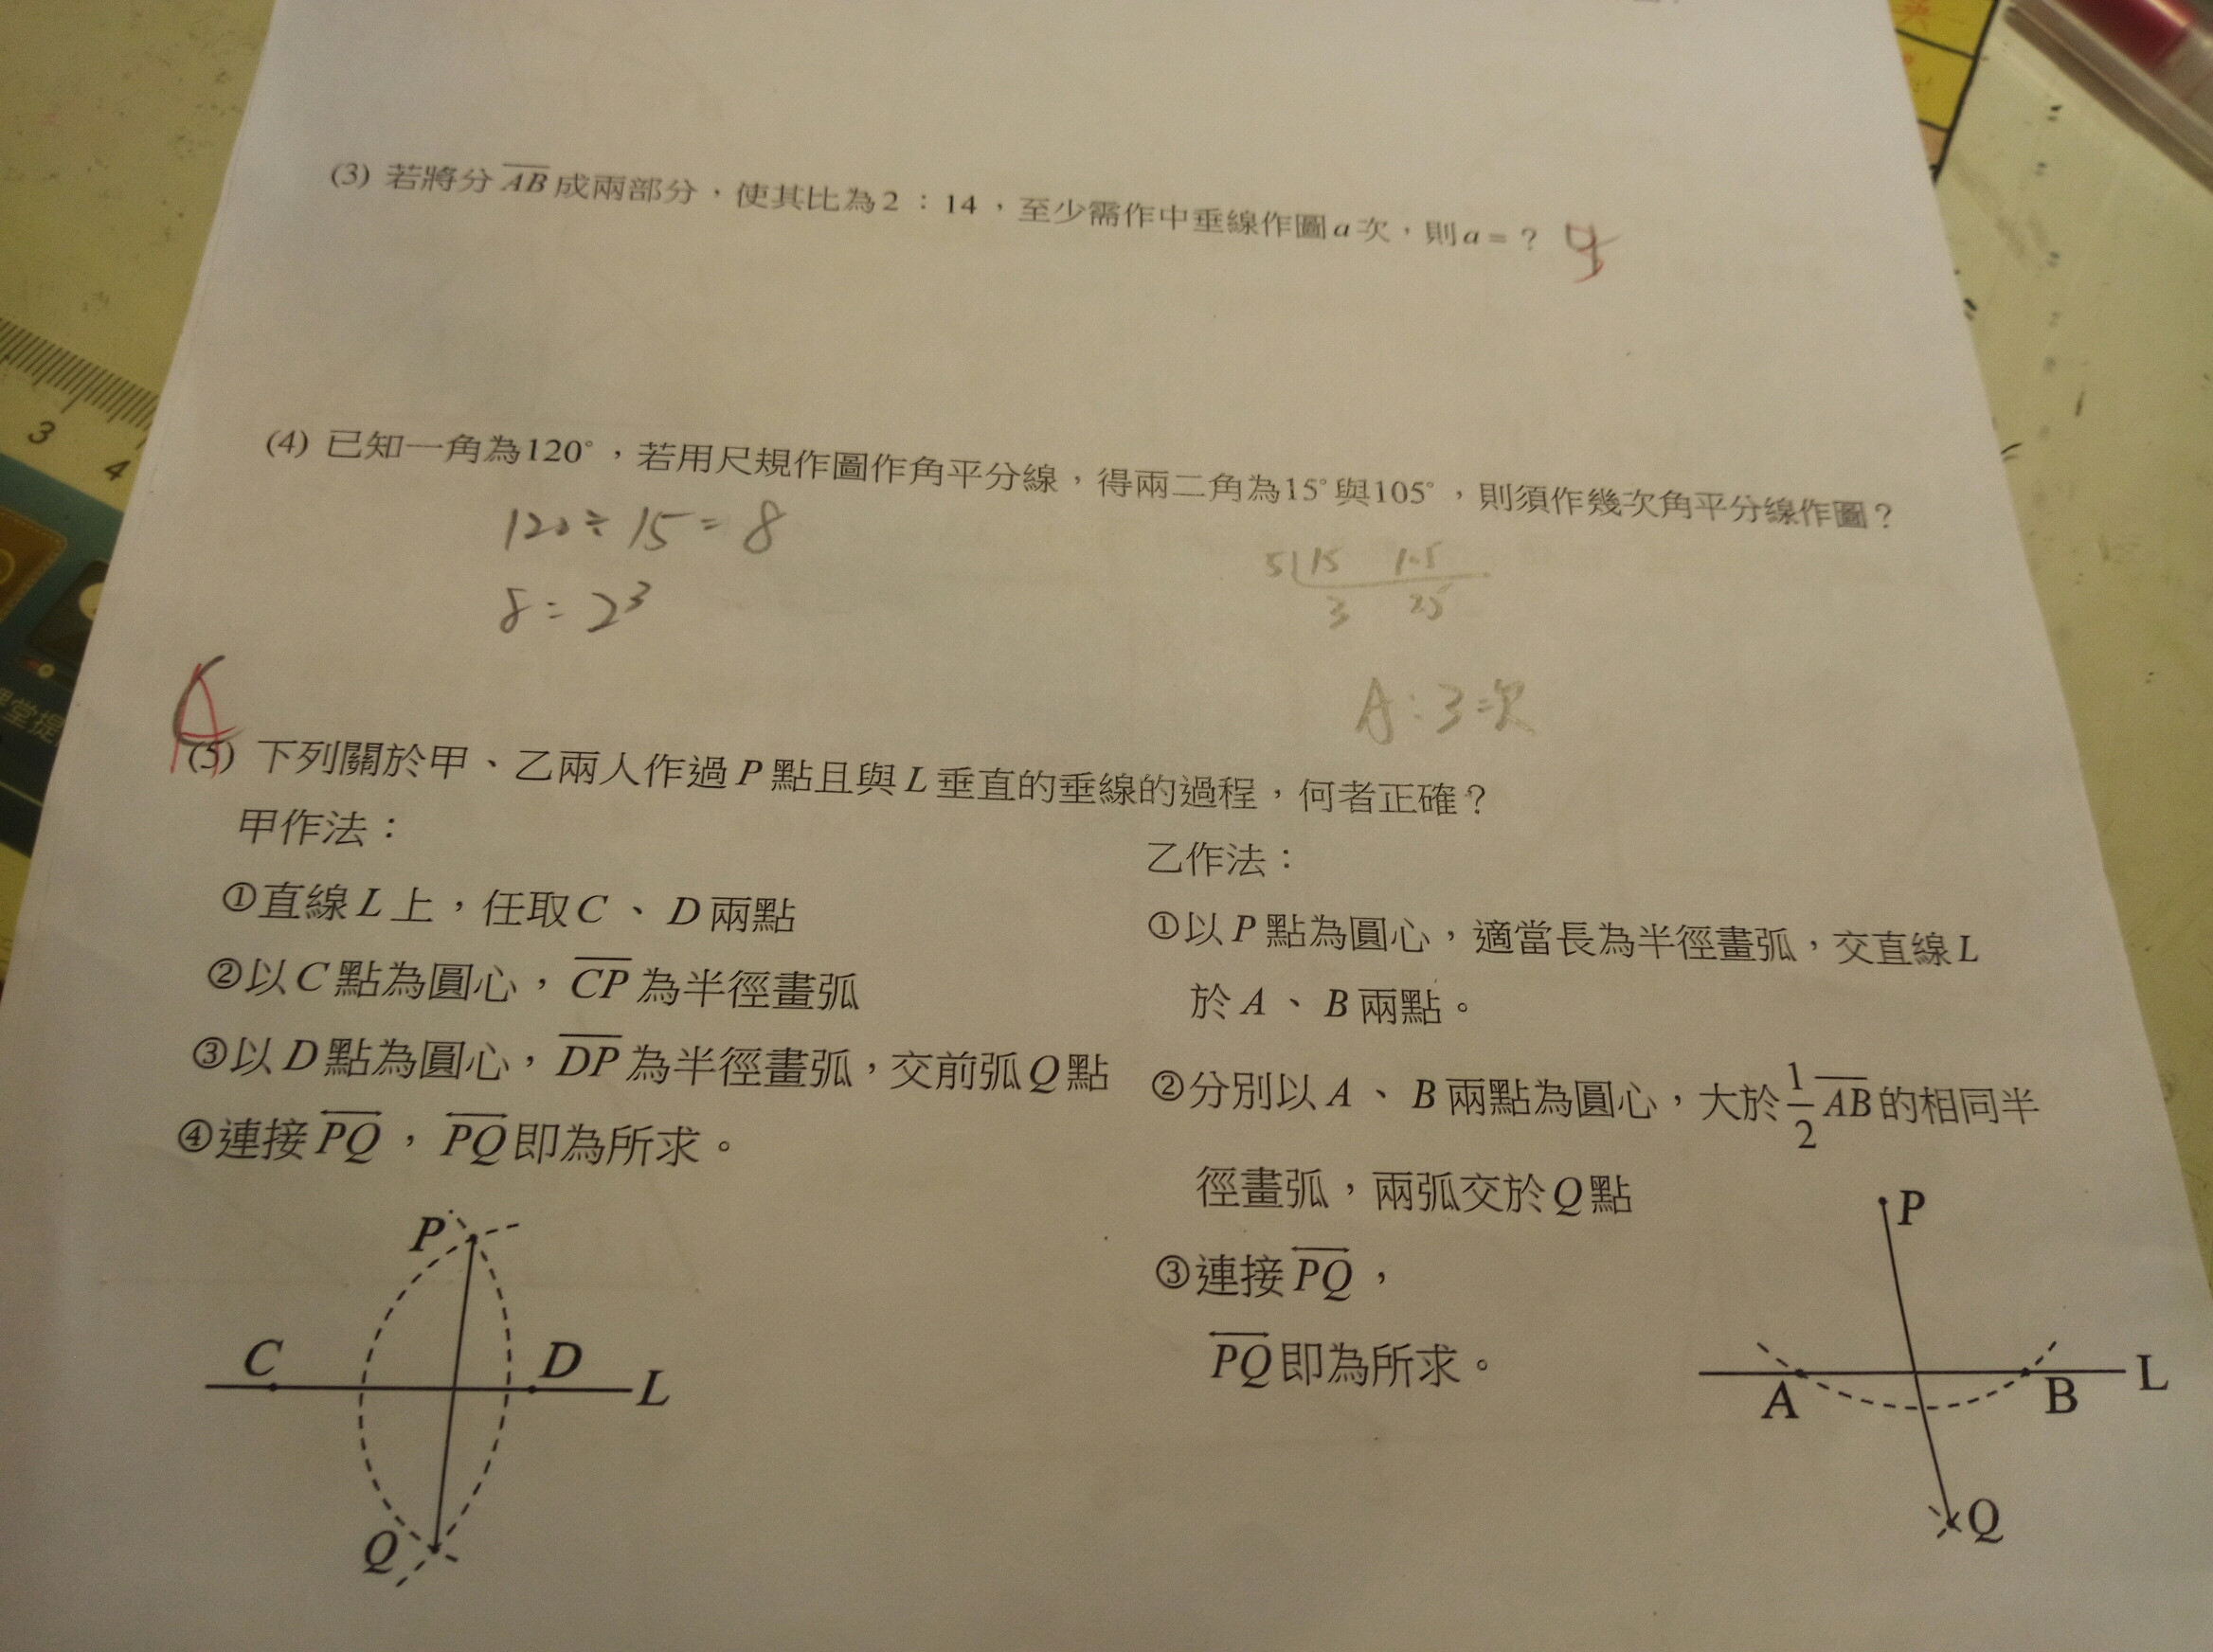 (3) 若將分 AB 成兩部分，使其比為2：14，至少需作中垂線作圖a次，則a=？
(4) 已知一角為120°，若用尺規作圖作角平分線，得兩二角為15°與105°，則須作幾次角平分線作圖？
120÷15=8
8=2³
5 15 105
3 25
A:3次
A
(5) 下列關於甲、乙兩人作過P點且與L垂直的垂線的過程，何者正確？
甲作法：
①直線L上，任取C、D兩點
②以C點為圓心，CP為半徑畫弧
③以D點為圓心，DP為半徑畫弧，交前弧Q點
④連接PQ，PQ即為所求。
P
C
D
L
Q
乙作法：
①以P點為圓心，適當長為半徑畫弧，交直線L
於A、B兩點。
②分別以A、B兩點為圓心，大於1/2 AB的相同半
徑畫弧，兩弧交於Q點
③連接PQ，
PQ即為所求。
P
A
B
L
Q
3
4